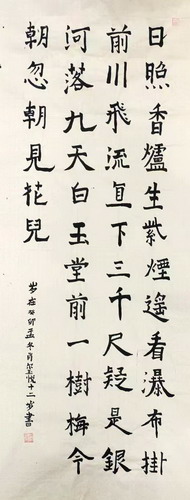 日照香爐生紫煙遙看瀑布掛
前川飛流直下三千尺疑是銀
河落九天白玉堂前一樹梅今
朝忽朝見花兒
岁在癸卯孟冬肖望悦十二岁書